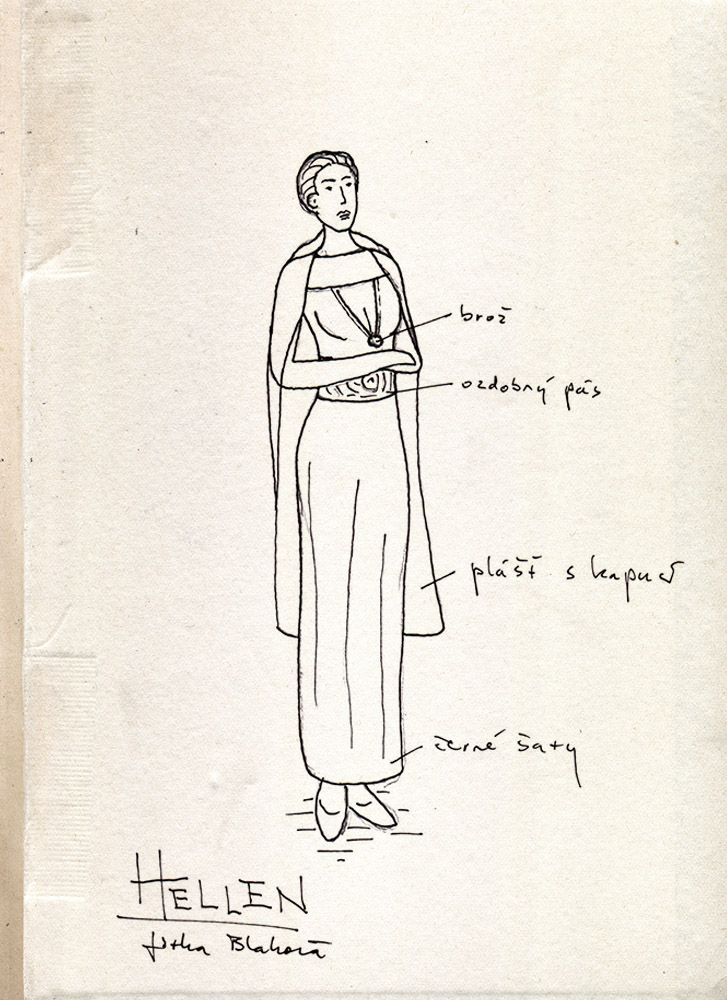 brož
ozdobný pás
plášť s kapucí
černé šaty
HELLEN
Jitka Blahová